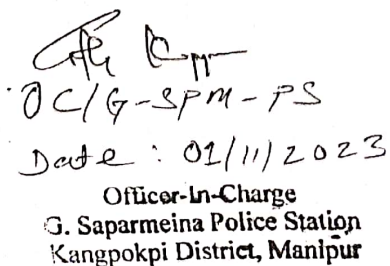 OC/G-SPM-PS
Date : 01/11/2023
Officer-In-Charge
G. Saparmeina Police Station
Kangpokpi District, Manipur